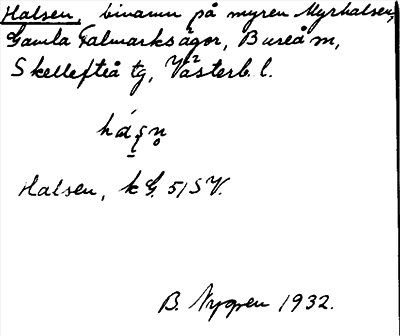 Halsen, binamn på myren Myrhalsen,
Gamla Falmarksägor, Bureå m,
Skellefteå tg, Västerb. l.
Halsen, k G. 51 SV.
B. Nygren 1932.